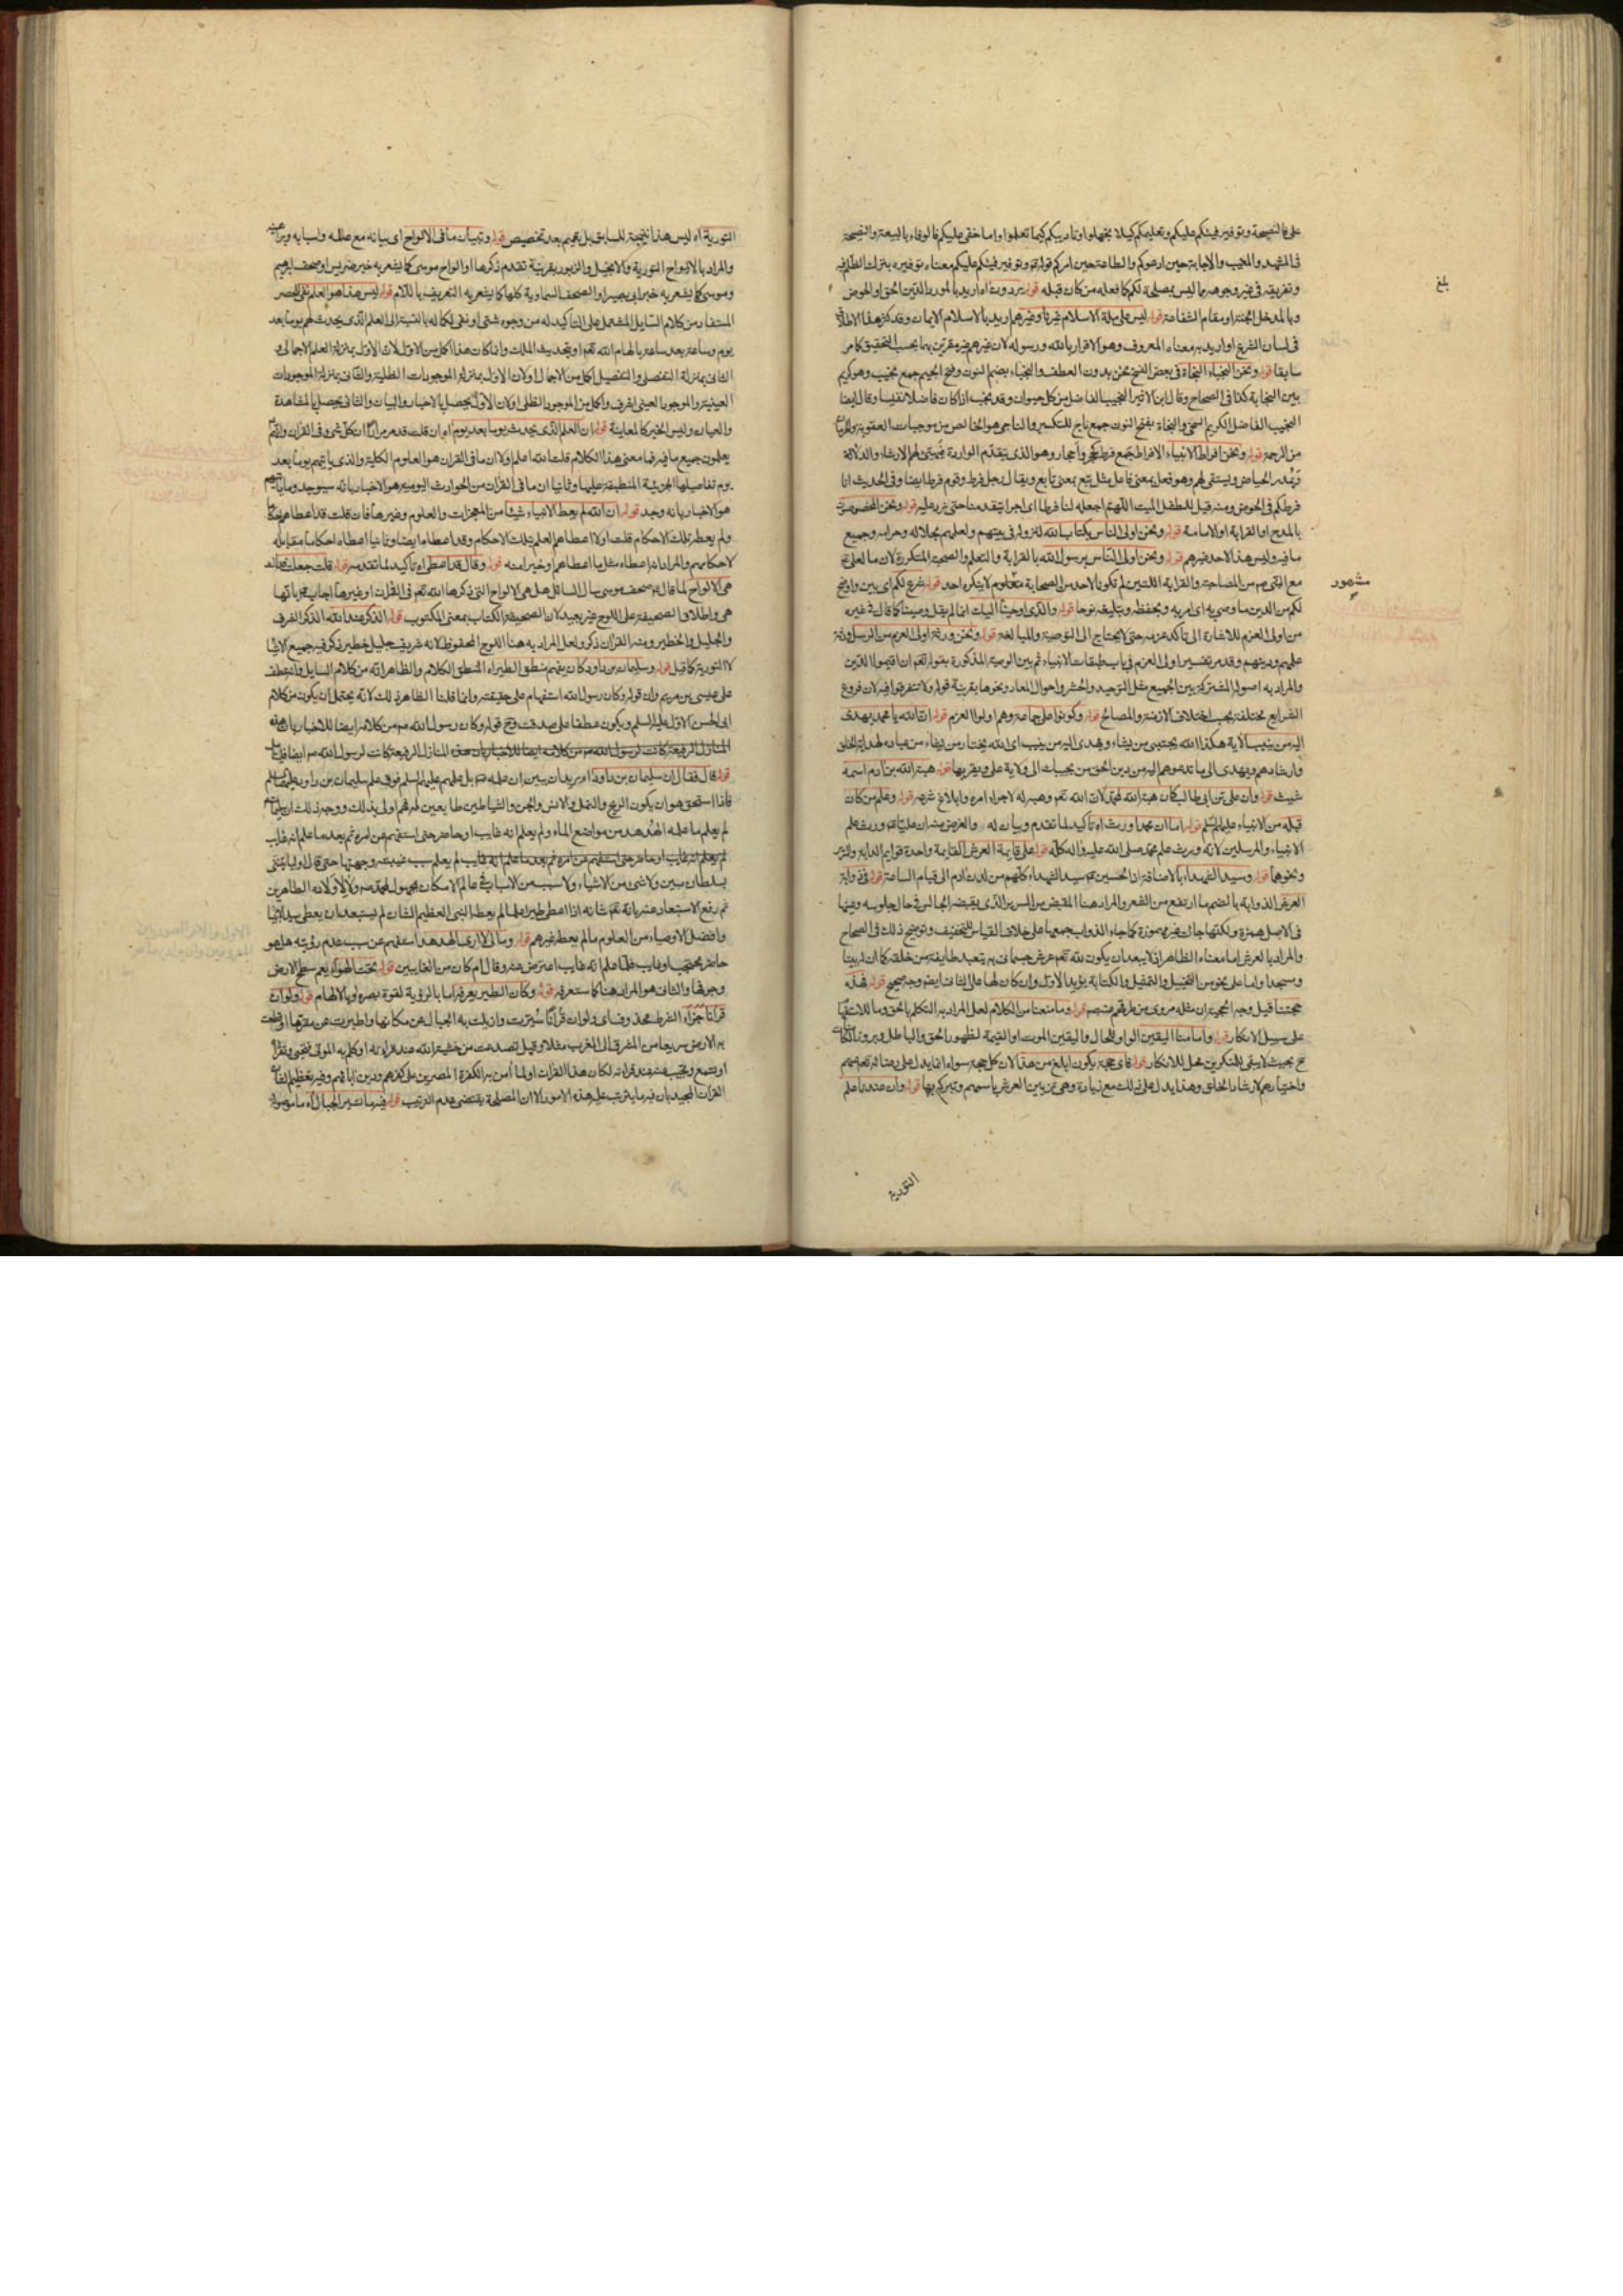 على فالنصيحة وتوفير فيئكم عليكم وتعليمكم كيلا تجهلوا وتأديبكم كيما تعلموا واما حقى عليكم فالوفاء بالبيعة والنصيحة
فى المشهد والمغيب والاجابة حين ادعوكم والطاعة حين امركم قوله وتوفير فيئكم عليكم معناه توفيره بترك الظلم فيه
وتفريقه فى غير وجوهه مما ليس بمصلحة لكم كما فعله من كان قبله قوله يردون اه اريد بالمورد الدين الحق او الحوض
وبالمدخل الجنة او مقام الشفاعة قوله ليس على ملة الاسلام غيرنا وغيرهم اريد بالاسلام الايمان وقد كثر هذا الاطلاق
فى لسان الشرع او اريد به معناه المعروف وهو الاقرار بالله ورسوله لان غيرهم غير مقرين بهما بحسب التحقيق كما مر
سابقا قوله ونحن النجباء النجاة فى بعض النسخ نحن بدون العطف والنجباء بضم النون وفتح الجيم جمع نجيب وهو كريم
بين النجابة كذا فى الصحاح وقال ابن الاثير النجيب الفاضل من كل حيوان وقد نجب اذا كان فاضلا نفيسا وقال ايضا
النجيب الفاضل الكريم السخى والنجاة بفتح النون جمع ناج للتكسير والناجى هو الخالص من موجبات العقوبة والحرمان
من الرحمة قوله ونحن افراط الانبياء الافراط جمع فرط كحجر واحجار وهو الذى يتقدم الواردة فيهيئ لهم الارشاء والدلاء
ويمدر الحياض ويستقى لهم وهو فعل بمعنى فاعل مثل تبع بمعنى تابع ويقال رجل فرط وقوم فرط ايضا وفى الحديث انا
فرطكم فى الحوض ومنه قيل للطفل الميت اللهم اجعله لنا فرطا اى اجرا يتقدمنا حتى نرد عليه قوله ونحن المخصوصون
بالمدح او القرابة او الامامة قوله ونحن اولى الناس بكتاب الله لنزوله فى بيتهم ولعلمهم بحلاله وحرامه وجميع
ما فيه وليس هذا لاحد غيرهم قوله ونحن اولى الناس برسول الله بالقرابة والتعلم والصحبة المتكررة لان ما لعلى ع
مع النبى ص من المصاحبة والقرابة اللتين لم تكونا لاحد من الصحابة معلوم لا ينكره احد قوله شرع لكم اى بين واوضح
لكم من الدين ما وصى به اى امر به وبحفظه وبتبليغه نوحا قوله والذى اوحينا اليك انما لم يقل وصينا كما قال فى غيره
من اولى العزم للاشارة الى تأكد عزمه حتى لا يحتاج الى التوصية والمبالغة قوله ونحن ورثة اولى العزم من الرسل ورثة
علمهم ودينهم وقد مر تفسير اولى العزم فى باب طبقات الانبياء ثم بين الوصية المذكورة بقوله تعم ان اقيموا الدين
والمراد به اصوله المشتركة بين الجميع مثل التوحيد والحشر واحوال المعاد ونحوها بقرينة قوله ولا تتفرقوا فيه لان فروع
الشرايع مختلفة بحسب اختلاف الازمنة والمصالح قوله وكونوا على جماعة وهم اولوا العزم قوله ان الله يا محمد يهدى
اليه من ينيب الآية هكذا الله يجتبى من يشاء ويهدى اليه من ينيب اى الله يختار من يشاء من عباده لهداية الخلق
وارشادهم ويهدى الى ما تدعوهم اليه من دين الحق من يجيبك الى ولاية على ويقر بها قوله هبة الله بن آدم اسمه
شيث قوله وان على بن ابى طالب كان هبة الله لمحمد لان الله تعم وهبه له لاجراء امره وابلاغ شرعه قوله وعلم من كان
قبله من الانبياء عليهم السلم قوله اما ان محمدا ورث اه تأكيد لما تقدم وبيان له والغرض منه ان عليا ع ورث علم
الانبياء والمرسلين لانه ورث علم محمد صلى الله عليه وآله كله قوله على قايمة العرش القايمة واحدة قوايم الدابة والسرير
ونحوهما قوله وسيد الشهداء بالاضافة اذ الحسين ع سيد الشهداء كلهم من لدن آدم الى قيام الساعة قوله وفى ذوابة
العرش الذوابة بالضم ما ارتفع من الشعر والمراد هنا المقبض من السرير الذى يقبضه الجالس فى حال جلوسه وعينها
فى الاصل همزة ولكنها جاءت غير مهموزة كما جاء الذوايب جمعها على خلاف القياس للتخفيف وتوضيح ذلك فى الصحاح
والمراد بالعرش اما معناه الظاهر اذ لا يبعد ان يكون لله تعم عرش جسمانى يتعبد طايفة من خلقه كما ان له بيتا
ومسجدا واما على نحو من التخييل والتمثيل والكناية يؤيد الاول وان كان لها على الثانى ايضا وجه صحيح قوله فهذه
حجتنا قيل وجه الحجية ان مثله مروى من طرقهم قوله وما منعنا من الكلام لعل المراد به التكلم بالحق وما للاستفهام
على سبيل الانكار قوله وامامنا اليقين الواو للحال واليقين الموت او القيمة لظهور الحق والباطل فيه
ح بحيث لا يبقى للمنكرين محل للانكار قوله فاى حجة يكون ابلغ من هذا لان كل حجة سواه انما يدل على رضائه تعم بهم
واختيارهم لارشاد الخلق وهذا يدل على ذلك مع زيادة وهى تزيين العرش باسمهم وتبركه بها قوله وان عندنا علم
بلغ
مشهور
التورية
التورية اه ليس هذا نتيجة للسابق بل تعميم بعد تخصيص قوله وتبيان ما فى الالواح اى بيانه مع علله واسبابه وبراهينه
والمراد بالالواح التورية والانجيل والزبور بقرينة تقدم ذكرها او الواح موسى كما يشعر به خبر ضريس او صحف ابرهيم
وموسى كما يشعر به خبر ابى بصير او الصحف السماوية كلها كما يشعر به التعريف باللام قوله ليس هذا هو العلم نفى للحصر
المستفاد من كلام السايل المشتمل على التاكيد له من وجوه شتى او نفى لكماله بالنسبة الى العلم الذى يحدث لهم يوما بعد
يوم وساعة بعد ساعة بالهام الله تعم او بتحديث الملك وانما كان هذا اكمل من الاول لان الاول بمنزلة العلم الاجمالى و
الثانى بمنزلة التفصيلى والتفصيل اكمل من الاجمال او لان الاول بمنزلة الموجودات الظلية والثانى بمنزلة الموجودات
العينية والموجود العينى اشرف واكمل من الموجود الظلى او لان الاول يحصل بالاخبار والبيان والثانى يحصل بالمشاهدة
والعيان وليس الخبر كالمعاينة قوله ان العلم الذى يحدث يوما بعد يوم اه ان قلت قد مر مرارا ان كل شىء فى القرآن وانهم
يعلمون جميع ما فيه فما معنى هذا الكلام قلت الله اعلم اولا ان ما فى القرآن هو العلوم الكلية والذى ياتيهم يوما بعد
يوم تفاصيلها الجزئية المنطبقة عليها وثانيا ان ما فى القرآن من الحوادث اليومية هو الاخبار بانه سيوجد وما ياتيهم
هو الاخبار بانه وجد قوله ان الله لم يعط الانبياء شيئا من المعجزات والعلوم وغيرها فان قلت قد اعطاهم احكاما
ولم يعطه تلك الاحكام قلت اولا اعطاهم العلم بتلك الاحكام وقد اعطاه ايضا وثانيا اعطاه احكاما مقابلة
لاحكامهم والمراد انه اعطاه مثل ما اعطاهم وخيرا منه قوله وقال قد اعطى اه تاكيد لما تقدمه قوله قلت جعلت فداك
هى الالواح لما قال ع صحف موسى سال السائل هل هى الالواح التى ذكرها الله تعم فى القرآن او غيرها اجاب ع بانها
هى واطلاق الصحيفة على اللوح غير بعيد لان الصحيفة الكتاب بمعنى المكتوب قوله الذكر عند الله الذكر الشرف
والجليل والخطير ومنه القرآن ذكر ولعل المراد به هنا اللوح المحفوظ لانه شريف جليل خطير ذكر فيه جميع الاشياء
لا التورية كما قيل قوله وسليمان بن داود كان يفهم منطق الطير اه المنطق الكلام والظاهر انه من كلام السايل وانه عطف
على عيسى بن مريم وان قوله وكان رسول الله استفهام على حقيقته وانما قلنا الظاهر ذلك لانه يحتمل ان يكون من كلام
ابى الحسن الاول عليه السلم ويكون عطفا على صدقت وح قوله وكان رسول الله ص من كلامه ايضا للاخبار بان هذه
المنازل الرفيعة كانت لرسول الله ص ايضا
قوله قال فقال ان سليمان بن داود اه يريد ان يبين ان علمه ع بل علمهم عليهم السلم فوق علم سليمان بن داود عليهما السلم
لم يعلم ما علمه الهدهد من مواضع الماء ولم يعلم انه غايب او حاضر حتى استفهم عن امره ثم بعد ما علم انه غايب
لم يعلم سبب غيبته وجهتها حتى قال او لياتينى
بسلطان مبين ولا شىء من الاشياء ولا سبب من الاسباب فى عالم الامكان مجهول لمحمد ص ولا لاولاده الطاهرين
ثم رفع الاستبعاد عنه بانه تعم شانه اذا اعطى طيرا علما لم يعطه النبى العظيم الشان لم يستبعد ان يعطى سيد الانبياء
وافضل الاوصياء من العلوم ما لم يعطه غيرهم قوله وما لى لا ارى الهدهد استفهم عن سبب عدم رؤيته هل هو
حاضر محتجب او غايب فلما علم انه غايب اعرض عنه وقال ام كان من الغايبين قوله تحت الهواء يعم سطح الارض
وجوفها والثانى هو المراد هنا كما ستعرفه قوله وكان الطير يعرفه اما بالرؤية لقوة بصره او بالالهام قوله ولو ان
قرآنا جزاء الشرط محذوف اى ولو ان قرآنا سيرت وازيلت به الجبال عن مكانها واطيرت عن مقرها او قطعت
به الارض سريعا من المشرق الى المغرب مثلا وقيل تصدعت من خشية الله عند قرائته او كلم به الموتى فتحيى وتقرأ
او تسمع وتجيب عند قرائته لكان هذا القرآن او لما آمن به الكفرة المصرين على كفرهم ودين آبائهم وفيه تعظيم لشان
القرآن المجيد بان فيه ما يترتب عليه هذه الامور الا ان المصلحة يقتضى عدم الترتيب قوله فيه ما تسير الجبال اه ما موصولة